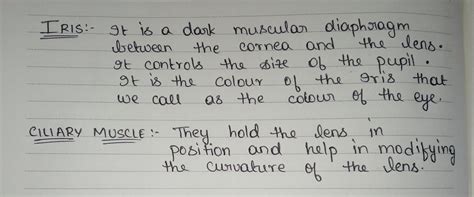 IRIS:- It is a dark muscular diaphragm
between the cornea and the lens.
It controls the size of the pupil.
It is the colour of the Iris that
we call as the colour of the eye.
CILIARY MUSCLE:- They hold the lens in
position and help in modifying
the curvature of the lens.